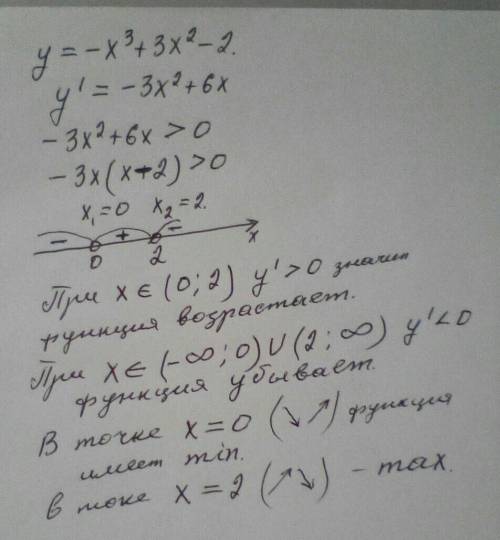 y = -x³ + 3x² - 2.
y' = -3x² + 6x
-3x² + 6x > 0
-3x(x-2) > 0
x₁=0 x₂=2.
- + -
0 2 x
При x ∈ (0; 2) y' > 0 значит
функция возрастает.
При x ∈ (-∞; 0) ∪ (2; ∞) y' < 0
функция убывает.
В точке x = 0 (↘↗) функция
имеет min.
в токе x = 2 (↗↘) - max.